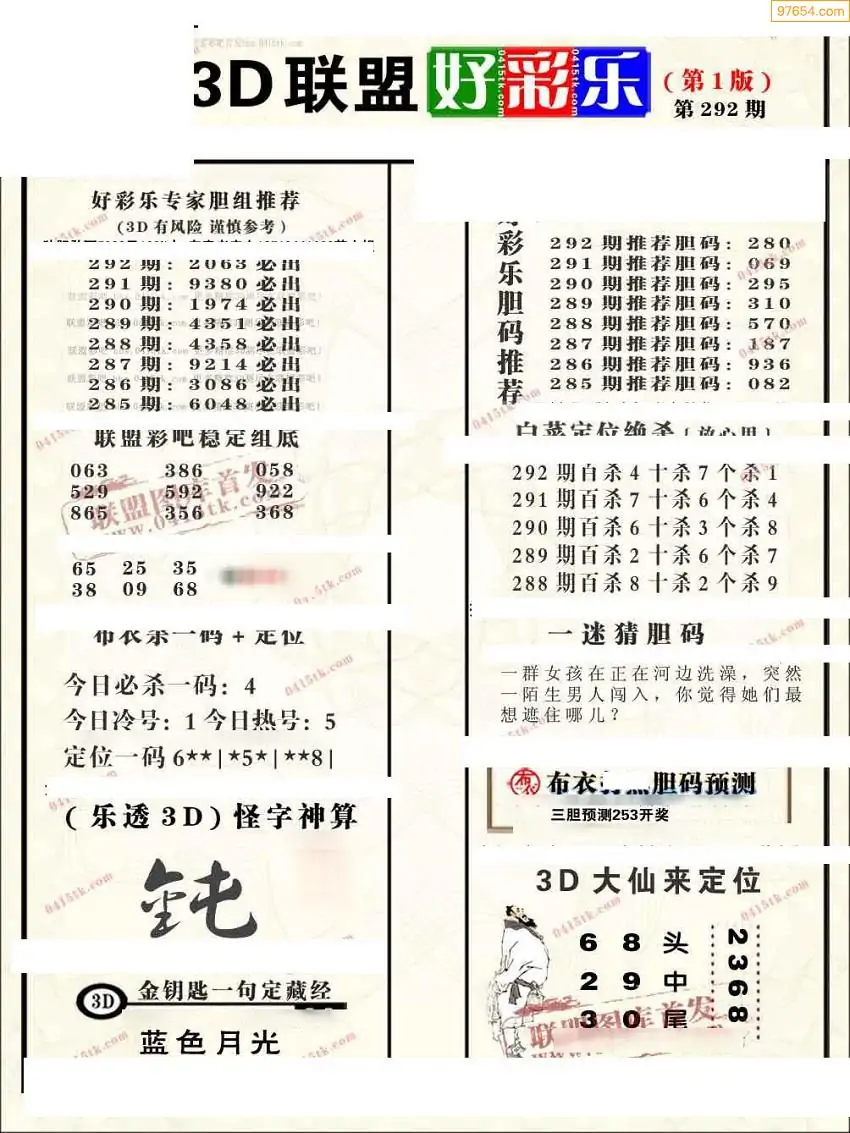 97654.com
3D联盟好彩乐
(第1版)
第292期
好彩乐专家胆组推荐
(3D有风险 谨慎参考)
292期：2063必出
291期：9380必出
290期：1974必出
289期：4351必出
288期：4358必出
287期：9214必出
286期：3086必出
285期：6048必出
联盟彩吧稳定组底
063 386 058
529 592 922
865 356 368
65 25 35
38 09 68
布衣杀一码+定位
今日必杀一码：4
今日冷号：1 今日热号：5
定位一码 6**|*5*|**8|
(乐透3D)怪字神算
钝
3D
金钥匙一句定藏经
蓝色月光
好彩乐胆码推荐
292期推荐胆码：280
291期推荐胆码：069
290期推荐胆码：295
289期推荐胆码：310
288期推荐胆码：570
287期推荐胆码：187
286期推荐胆码：936
285期推荐胆码：082
白菜定位绝杀（放心用）
292期百杀4十杀7个杀1
291期百杀7十杀6个杀4
290期百杀6十杀3个杀8
289期百杀2十杀6个杀7
288期百杀8十杀2个杀9
一迷猜胆码
一群女孩在正在河边洗澡，突然
一陌生男人闯入，你觉得她们最
想遮住哪儿？
布衣
胆码预测
三胆预测253开奖
3D大仙来定位
6 8 头
2 9 中
3 0 尾
2368
联盟图库首发
www.0415tk.com
0415tk.com